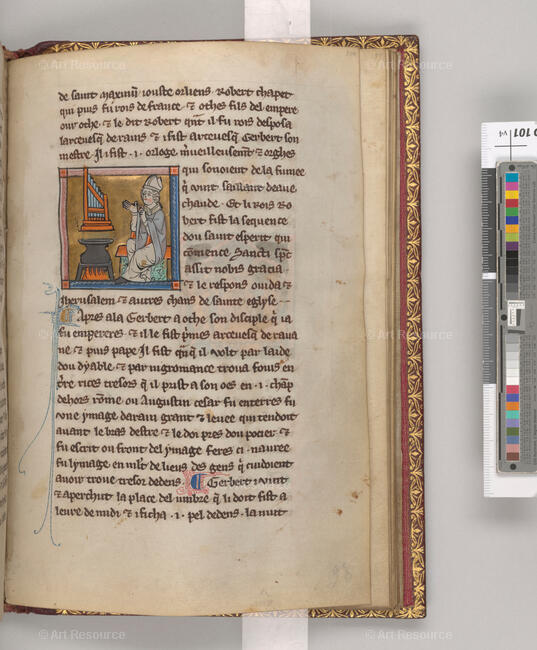 © Art Resource
© Art Resource
de saint maximin iouste orliens. Robert chapet
qui puis fu rois de france. & othes fils del empere
our othe. & le dit Robert qnt il fu rois desposa
larcevesq de rains & i fist arcevesq Gerbert son
mestre. Il fist .i. orloge mueilleusemt & orghes
qui sonoient de la fumee
q vint saillant deaue
chaude. Et li rois Ro
bert fist la sequence
dou saint esperit qui
comence Sancti spc
assit nobis gracia
& le respons o iuda &
Jherusalem & autres chans de sainte eglyse
Apres ala Gerbert a othe son disciple q ia
fu empereres & il le fist pmes arcevesq de rava
ne & puis pape. Il fist qnq il volt par laide
dou dyable & par nigromance trova fouis en
rices tresors q il prist a son oes en .i. chap
dehors rome ou Augustin cesar fu enterres fu
une ymage darain grant & levee qui tendoit
avant le bras destre & le doi pres dou pocier &
fu escrit ou front del ymage feres ci. navree
fu lymage en de lieus des gens q cuidoient
avoir trove tresor dedens. Gerbert i vint
& aperchut la place del umbre q li doit fist a
leure de midi & i ficha .i. pel dedens. la nuit
101
© Art Resource
© Art Resource